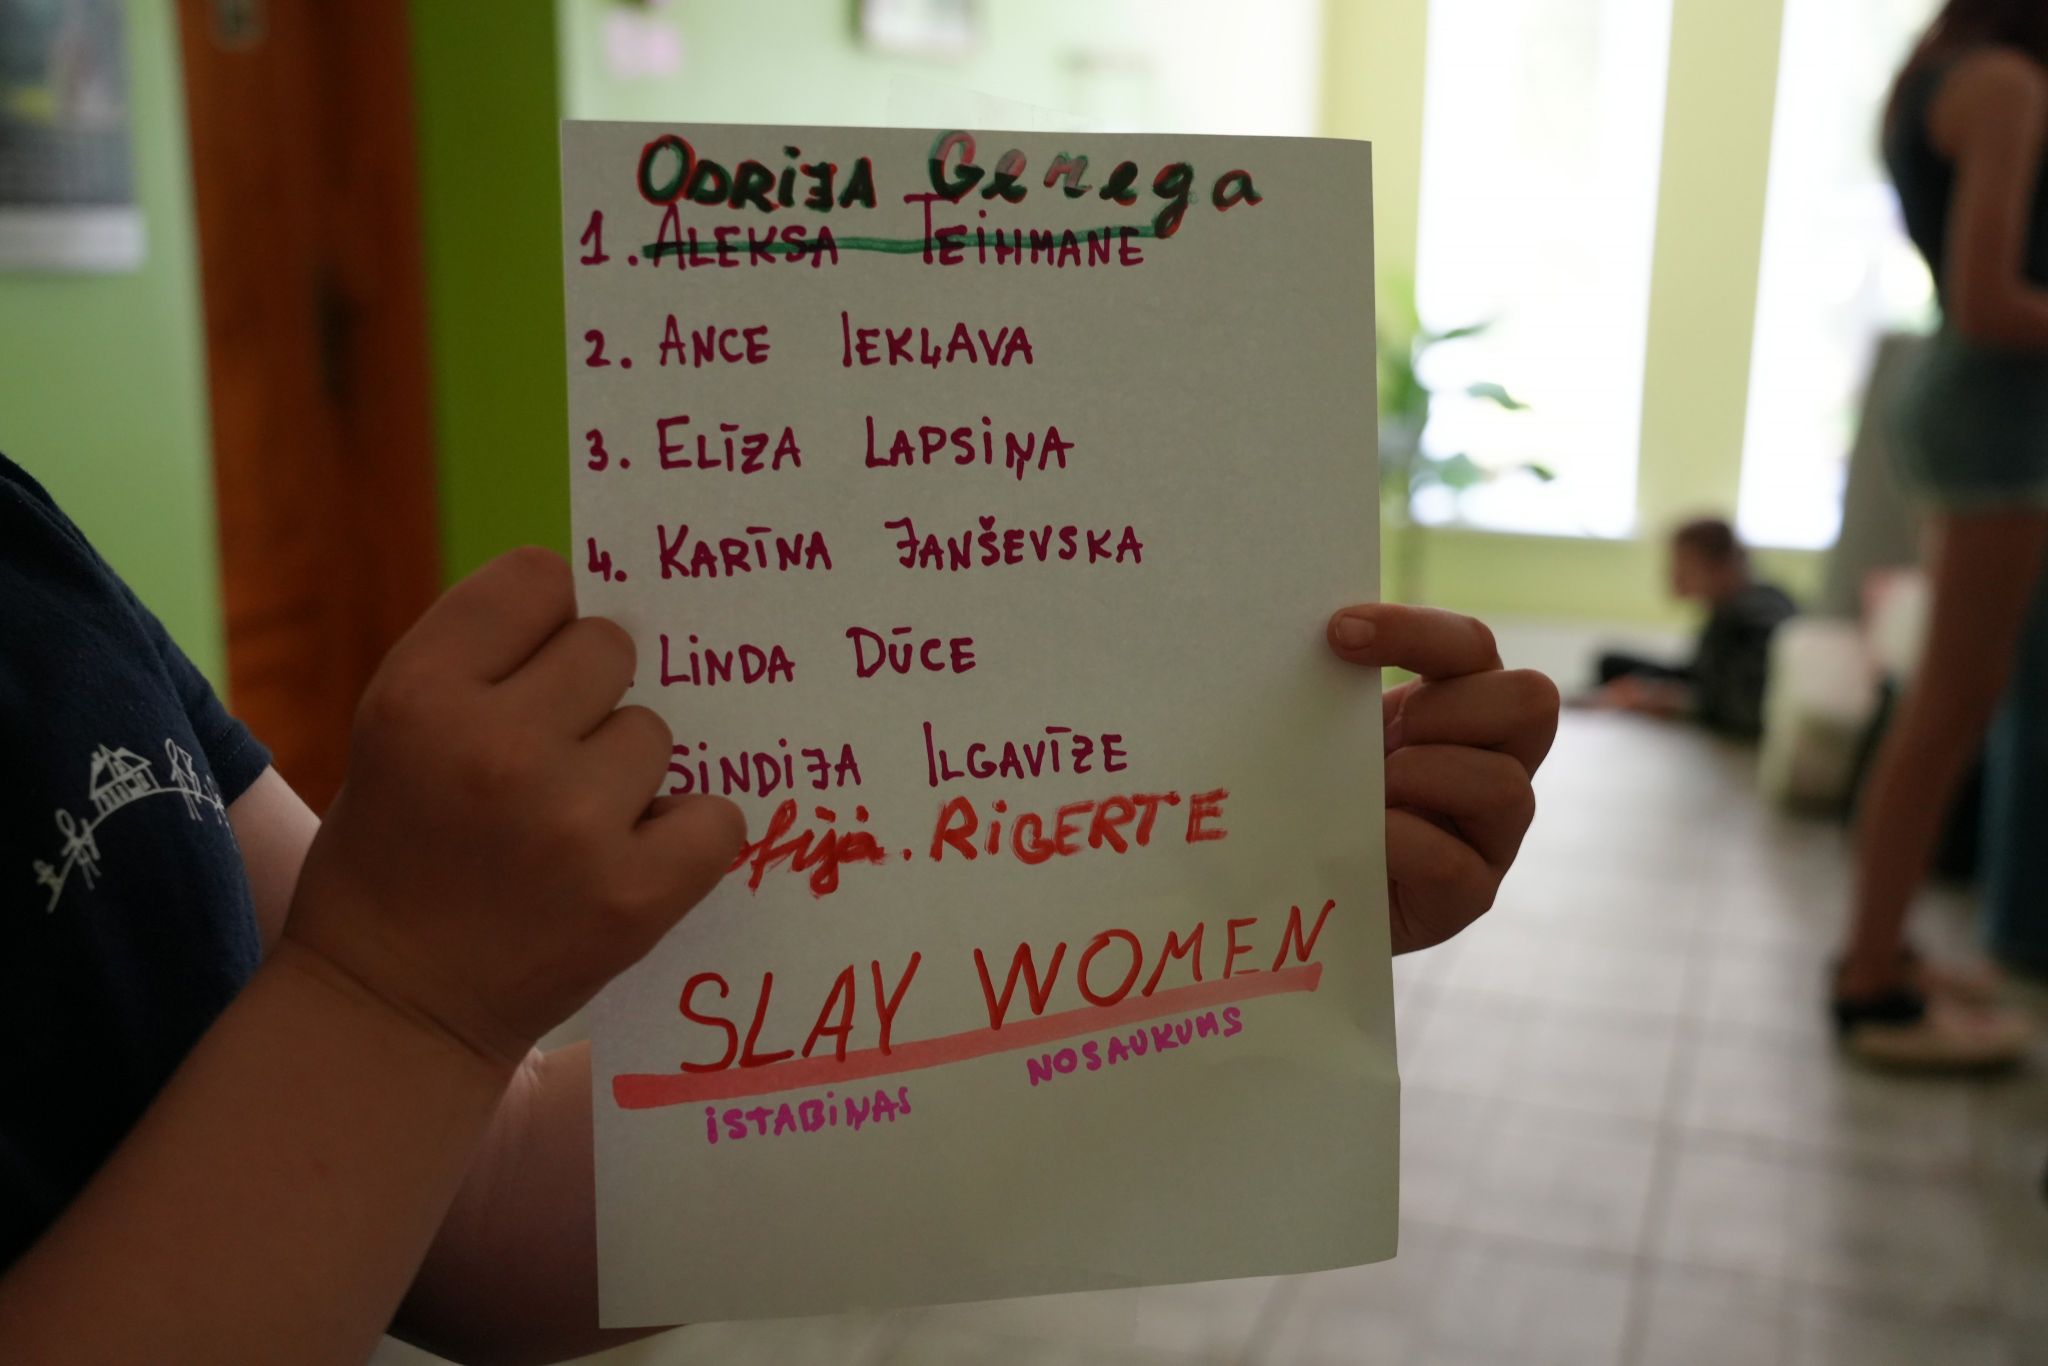 ODRIJA Genega
1. ALEKSA TEIHMANE
2. ANCE IEKĻAVA
3. ELĪZA LAPSIŅA
4. KARĪNA JANŠEVSKA
LINDA DŪCE
SINDIJA ILGAVĪZE
RIGERTE
SLAY WOMEN
ISTABIŅAS NOSAUKUMS